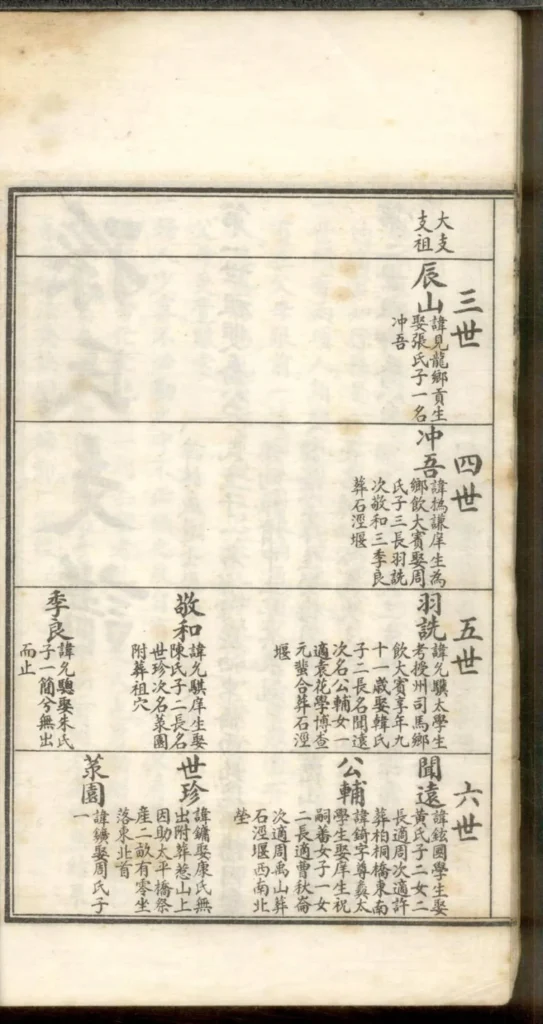 大支
支祖
三世
辰山
諱見龍鄉貢生
娶張氏子一名
冲吾
四世
冲吾
諱撝謙庠生為
鄉飲大賓娶周
氏子三長羽詵
次敬和三季良
葬石涇堰
五世
羽詵
諱允驥太學生
考授州司馬鄉
飲大賓享年九
十一歲娶韓氏
子二長名聞遠
次名公輔女一
適袁花學博查
元蜚合葬石涇
堰
敬和
諱允騏庠生娶
陳氏子二長名
世珍次名菉園
附葬祖穴
季良
諱允驄娶朱氏
子一簡兮無出
而止
六世
聞遠
諱鉉國學生娶
黃氏子二女二
長適周次適許
葬柏桐橋東南
公輔
諱錡字尊彝太
學生娶庠生祝
嗣蕃女子一女
二長適曹秋崙
次適周禹山葬
石涇堰西南北
塋
世珍
諱鏞娶康氏無
出附葬惹山上
因助太平橋祭
產二畝有零坐
落東北首
菉園
諱鑛娶周氏子
一